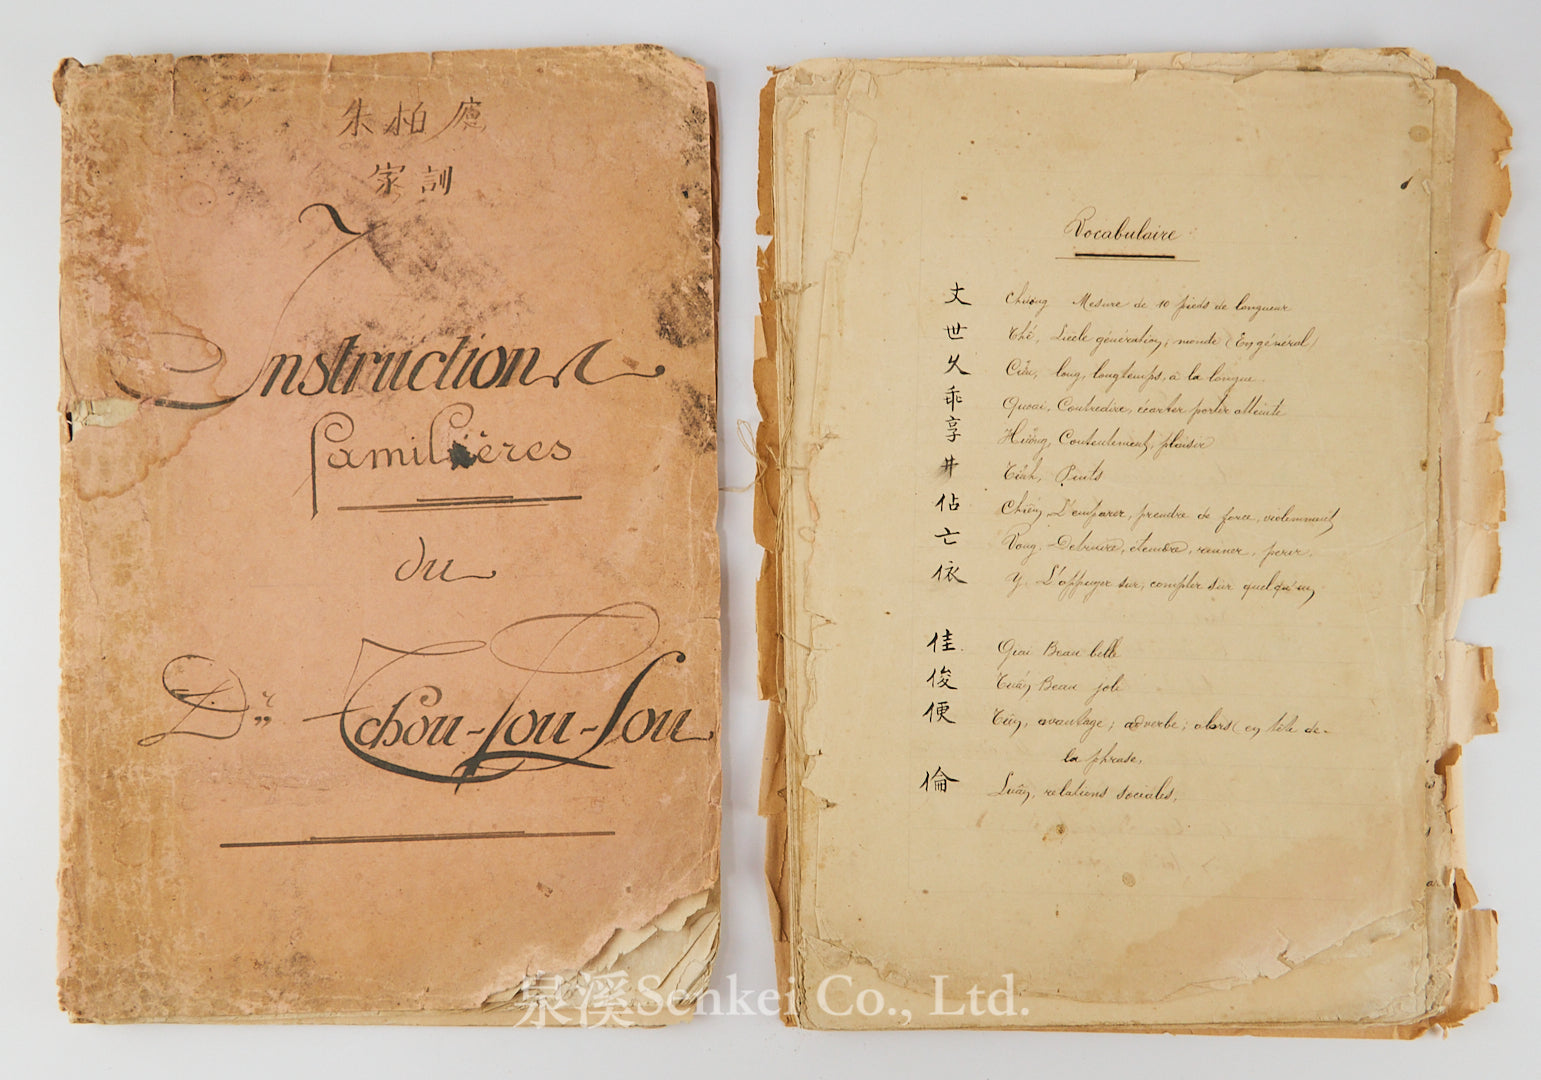 朱柏廬
家訓
Instructions
familières
du
Dr Tchou-Pou-Lou
Vocabulaire
丈 Chượng Mesure de 10 pieds de longueur
世 Thế, Siècle génération; monde (En général)
久 Cửu, long, longtemps, à la longue.
乖 Quai, Contredire, écarter porter atteinte
享 Hưởng, Contentement, plaisir
井 Tỉnh, Puits
佔 Chiếm S'emparer, prendre de force, violemment
亡 Vong, Détruire, étendre, ruiner, périr.
依 Y, S'appuyer sur, compter sur quelqu'un
佳 Giai Beau belle
俊 Tuấn Beau joli
便 Tiện, avantage; adverbe; alors (en tête de-
la phrase,
倫 Luân, relations sociales,
泉溪Senkei Co., Ltd.